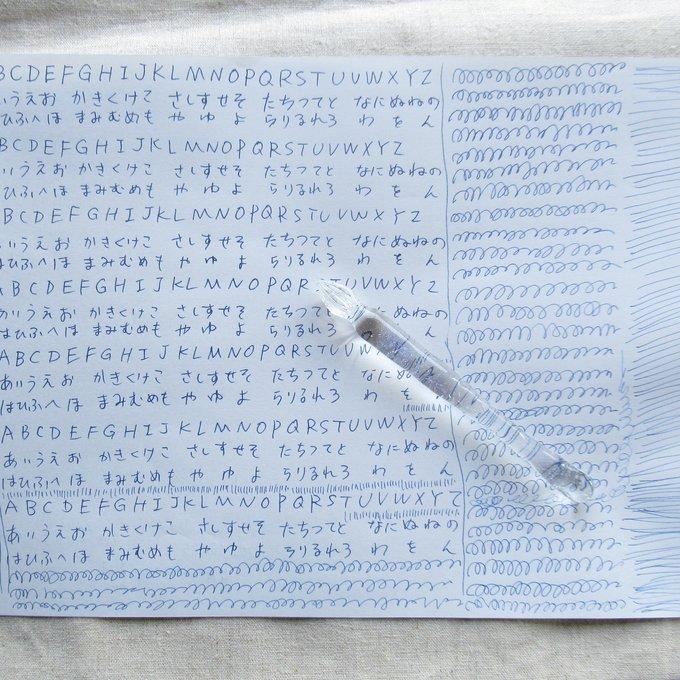 BCDEFGHIJKLMNOPQRSTUVWXYZ
いうえお かきくけこ さしすせそ たちつてと なにぬねの
ひふへほ まみむめも や ゆ よ らりるれろ わ を ん
BCDEFGHIJKLMNOPQRSTUVWXYZ
いうえお かきくけこ さしすせそ たちつてと なにぬねの
はひふへほ まみむめも や ゆ よ らりるれろ わ を ん
BCDEFGHIJKLMNOPQRSTUVWXYZ
いうえお かきくけこ さしすせそ たちつてと なにぬねの
はひふへほ まみむめも や ゆ よ らりるれろ わ を ん
ABCDEFGHIJKLMNOPQRSTUVWXYZ
あいうえお かきくけこ さしすせそ たちつて にぬねの
はひふへほ まみむめも や ゆ よ らりるれろ ん
ABCDEFGHIJKLMNOPQRSTUVW YZ
あいうえお かきくけこ さしすせそ たちつてと なにぬ
はひふへほ まみむめも や ゆ よ らりるれろ わ を
ABCDEFGHIJKLMNOPQRSTUVWXYZ
あいうえお かきくけこ さしすせそ たちつてと なにぬねの
はひふへほ まみむめも や ゆ よ らりるれろ わ を ん
ABCDEFGHIJKLMNOPQRSTUVWXYZ
あいうえお かきくけこ さしすせそ たちつてと なにぬねの
はひふへほ まみむめも や ゆ よ らりるれろ わ を ん